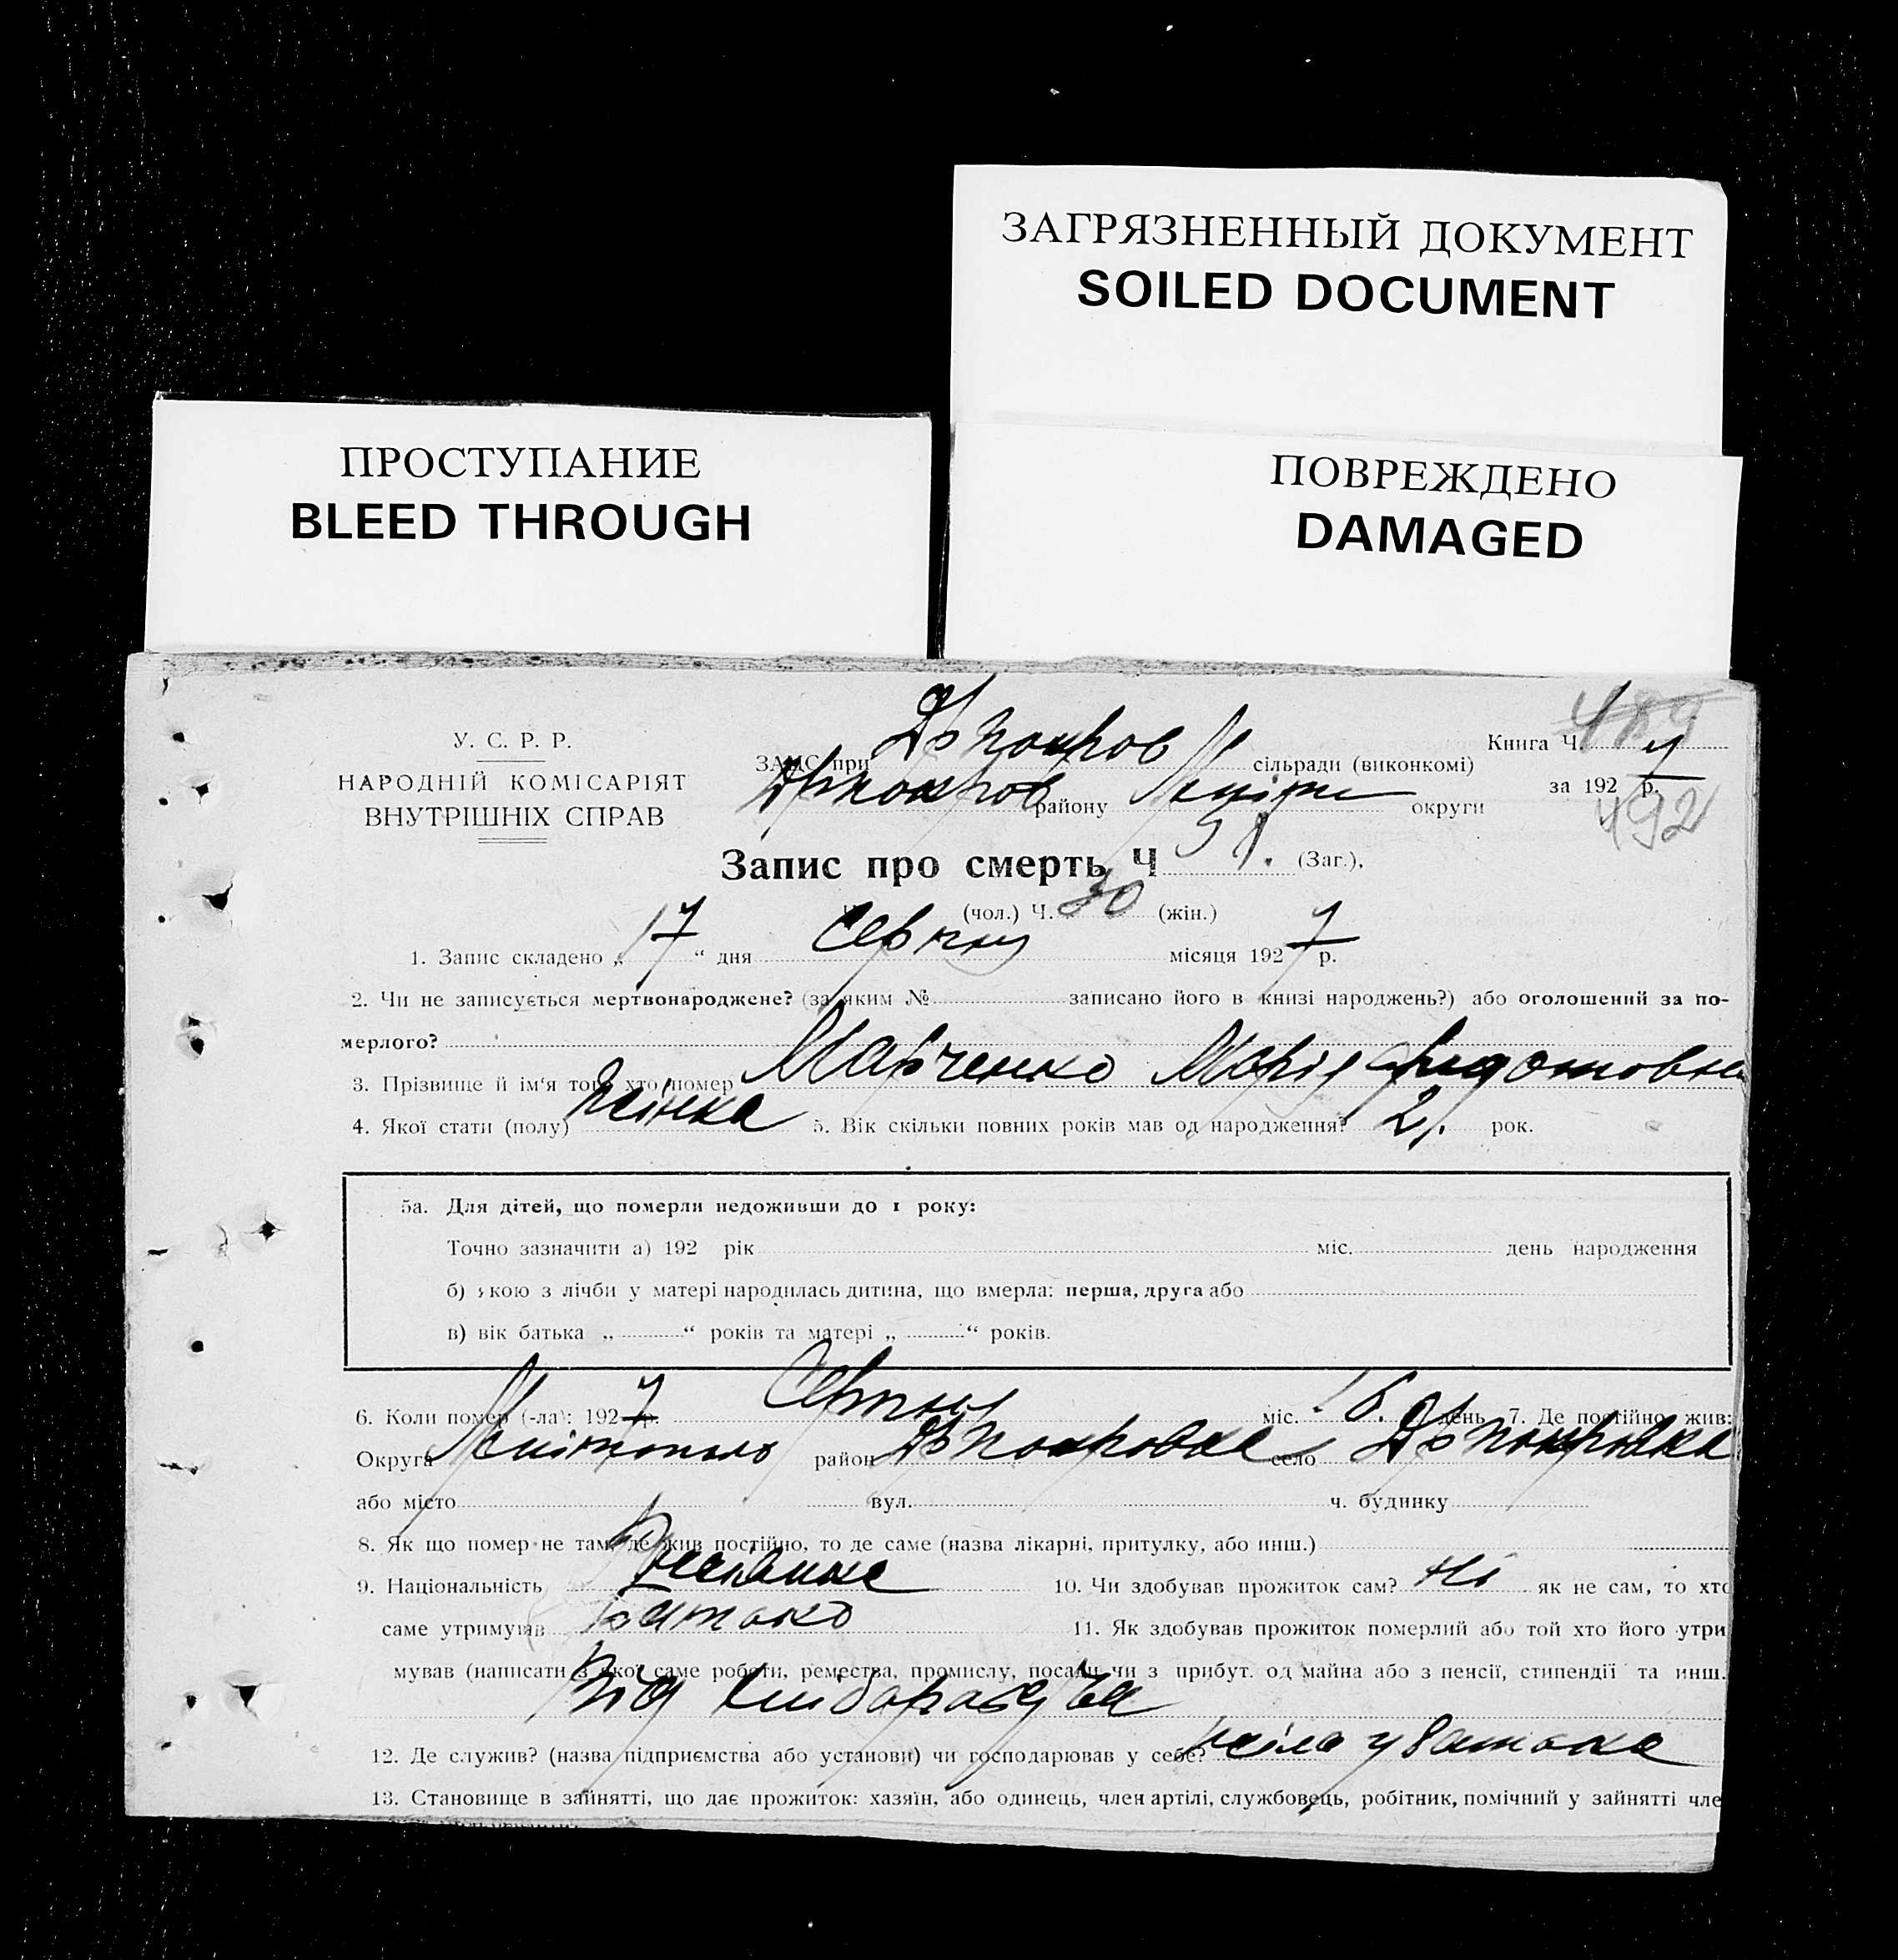 ЗАГРЯЗНЕННЫЙ ДОКУМЕНТ
SOILED DOCUMENT
ПРОСТУПАНИЕ
BLEED THROUGH
ПОВРЕЖДЕНО
DAMAGED
489
У. С. Р. Р.
НАРОДНІЙ КОМІСАРІЯТ
ВНУТРІШНІХ СПРАВ
ЗАГС при сільради (виконкомі)
району округи
Книга Ч.
за 1927 р.
492
Запис про смерть Ч (Заг.),
(чол.) Ч. 30 (жін.)
1. Запис складено „ 17 “ дня Серпня місяця 1927 р.
2. Чи не записується мертвонароджене? (за яким № записано його в книзі народжень?) або оголошений за по-
мерлого?
3. Прізвище й ім‘я того хто помер Марченко Марія
4. Якої стати (полу) жінка 5. Вік скільки повних років мав од народження? 21. рок.
5а. Для дітей, що померли недоживши до 1 року:
Точно зазначити а) 192 рік міс. день народження
б) якою з лічби у матері народилась дитина, що вмерла: перша, друга або
в) вік батька „ “ років та матері „ “ років.
6. Коли помер (-ла): 1927 р. Серпня міс. 16. день 7. Де постійно жив:
Округа район село
або місто вул. ч. будинку
8. Як що помер не там, де жив постійно, то де саме (назва лікарні, притулку, або инш.)
9. Національність 10. Чи здобував прожиток сам? Ні як не сам, то хто
саме утримував Батько 11. Як здобував прожиток померлий або той хто його утри
мував (написати з якої саме роботи, ремества, промислу, посади чи з прибут. од майна або з пенсії, стипендії та инш.
Від хліборобства
12. Де служив? (назва підприємства або установи) чи господарював у себе? жіла у батька
13. Становище в зайнятті, що дає прожиток: хазяїн, або одинець, член артілі, службовець, робітник, помічний у зайнятті чле